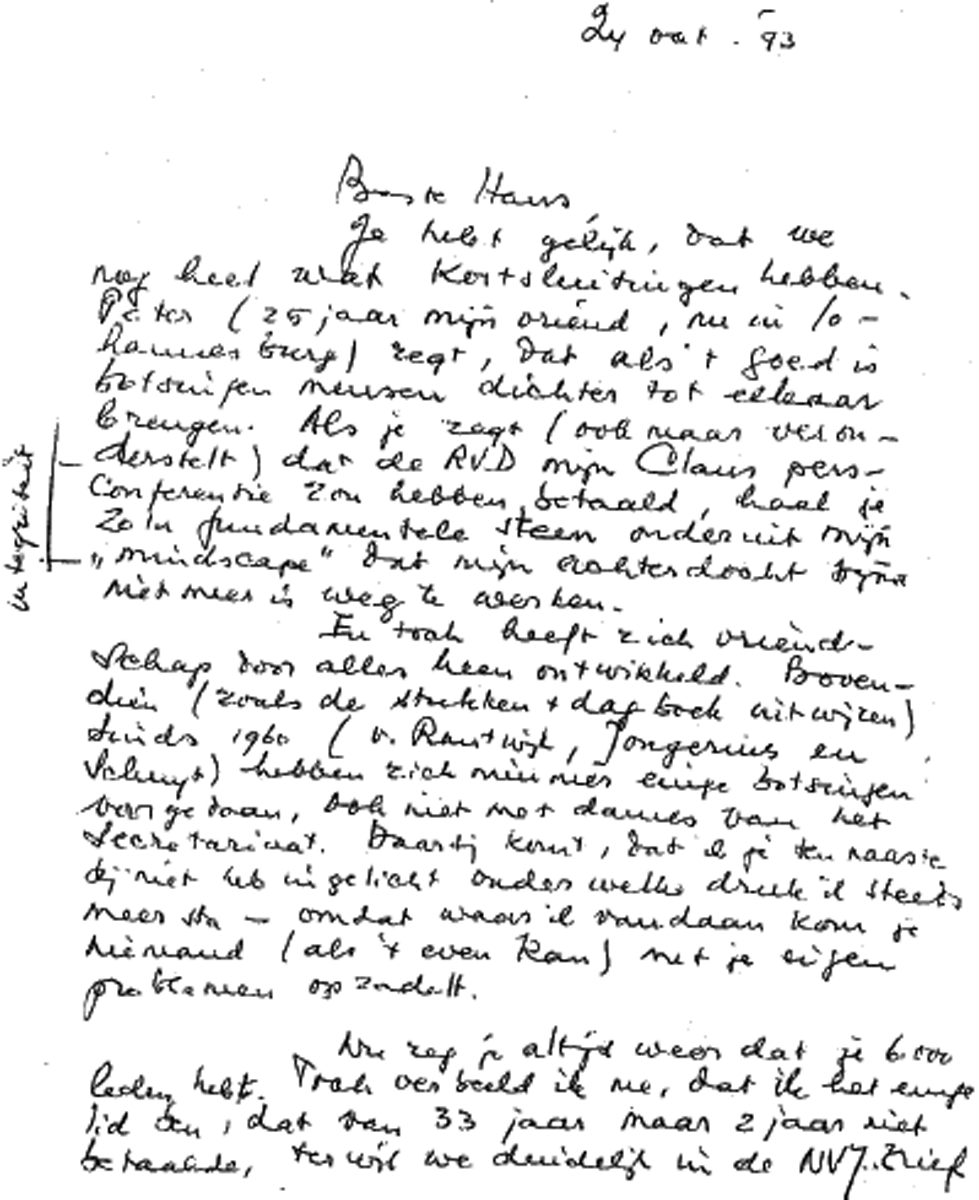 24 oct. '93
Beste Hans,
Je hebt gelijk, dat we
nog heel wat kortsluitingen hebben.
Peter (25 jaar mijn vriend, nu in Jo-
hannesburg) zegt, dat als 't goed is
botsingen mensen dichter tot elkaar
brengen. Als je zegt (ook maar veron-
derstelt) dat de RVD mijn Claus pers-
conferentie zou hebben betaald, haal je
zo'n fundamentele steen onderuit mijn
„mindscape" dat mijn achterdocht bijna
niet meer is weg te werken.
integriteit
En toch heeft zich vriend-
schap door alles heen ontwikkeld. Boven-
dien (zoals de stukken + dagboek uitwijzen)
sinds 1960 (v. Rantwijk, Jongerius en
Schuyt) hebben zich nimmer enige botsingen
voorgedaan, ook niet met dames van het
secretariaat. Daarbij komt, dat ik je ten naaste
bij niet heb ingelicht onder welke druk ik steeds
meer sta - omdat waar ik vandaan kom je
niemand (als 't even kan) met je eigen
problemen opzadelt.
Nu zeg je altijd weer dat je 6.000
leden hebt. Toch verbeeld ik me, dat ik het enige
lid ben, dat van 33 jaar maar 2 jaar niet
betaalde, terwijl we duidelijk in de NVJ-brief